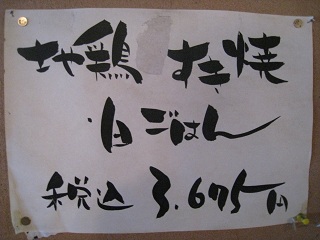 さや鶏 すき焼
白ごはん
税込 3.675円